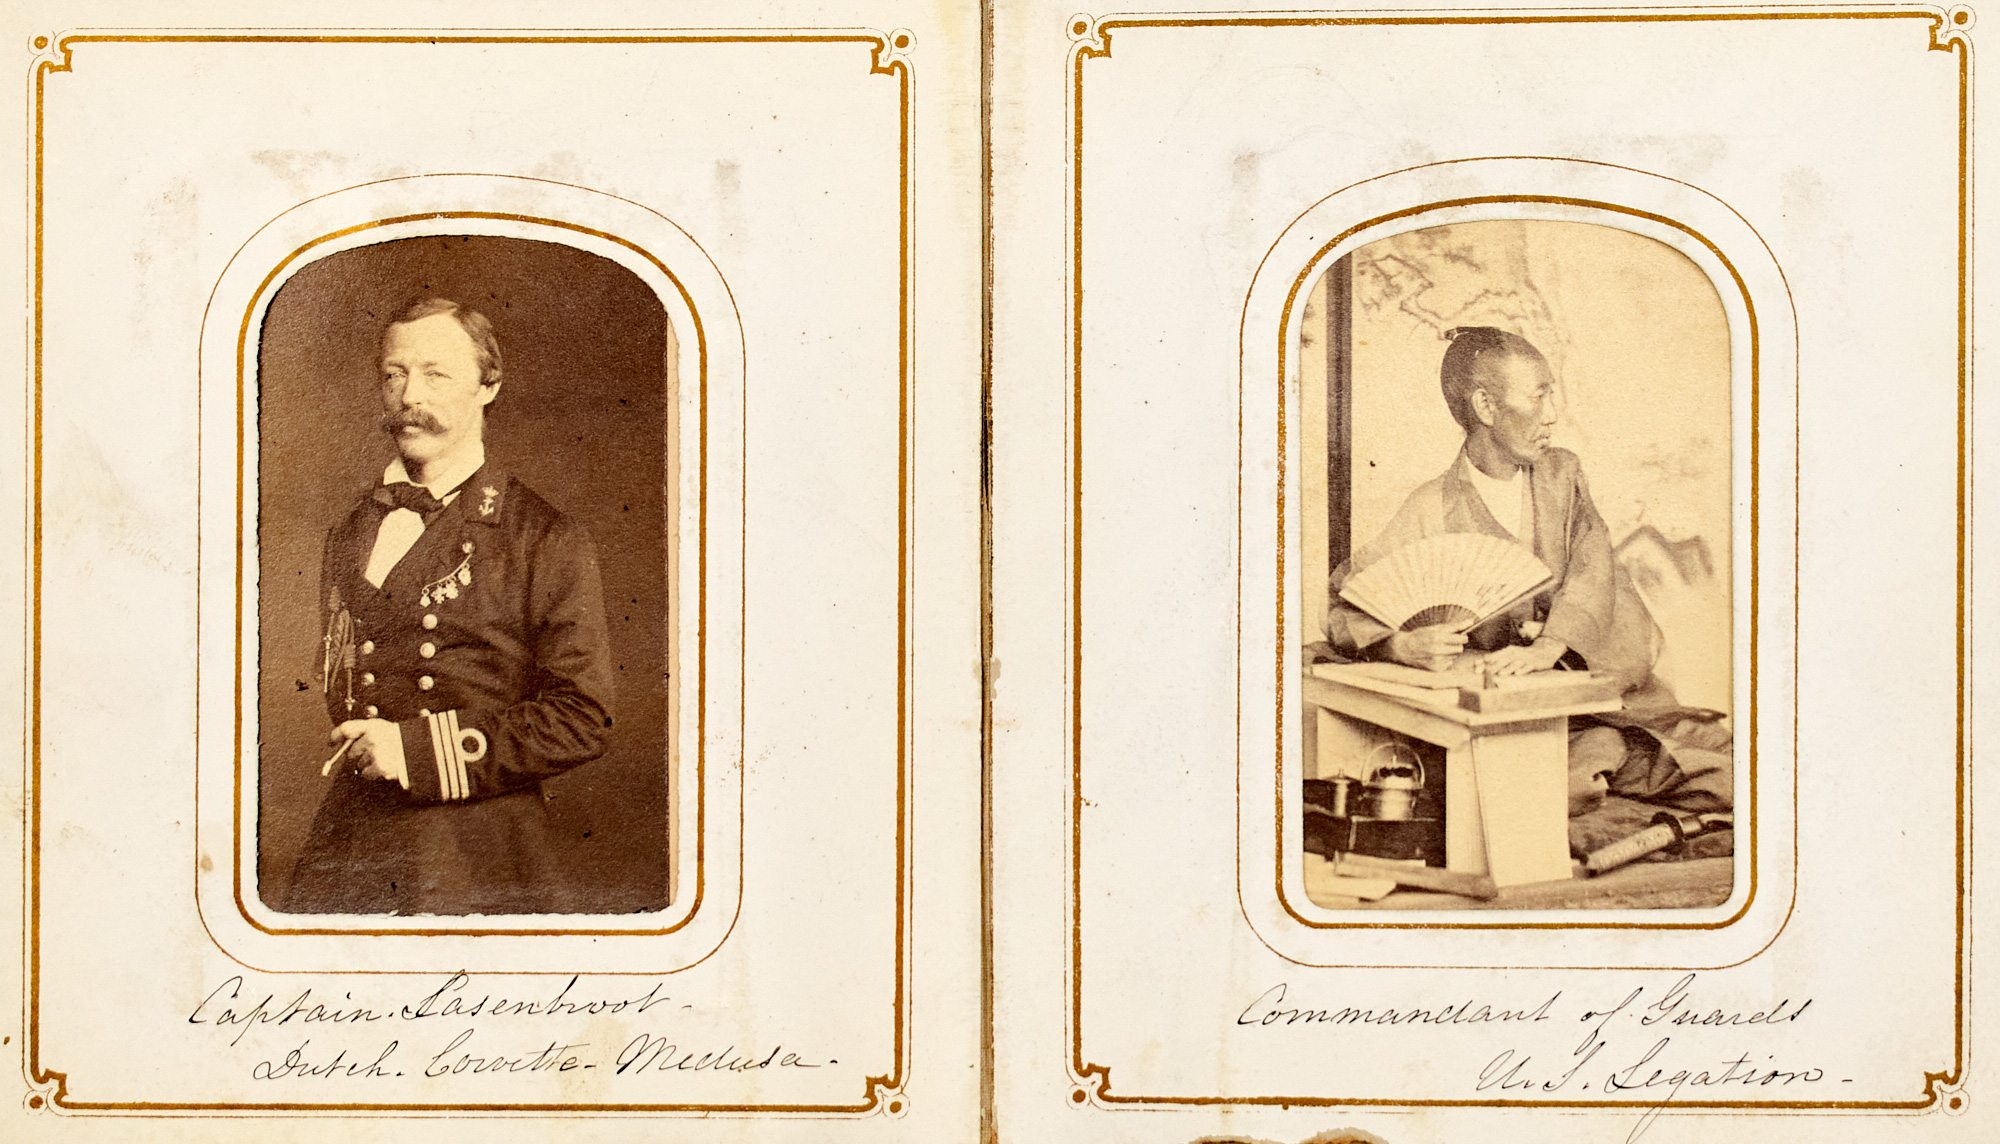 Captain. Casenbroot -
Dutch. Corvette - Medusa -
Commandant of Guards
U. S. Legation -